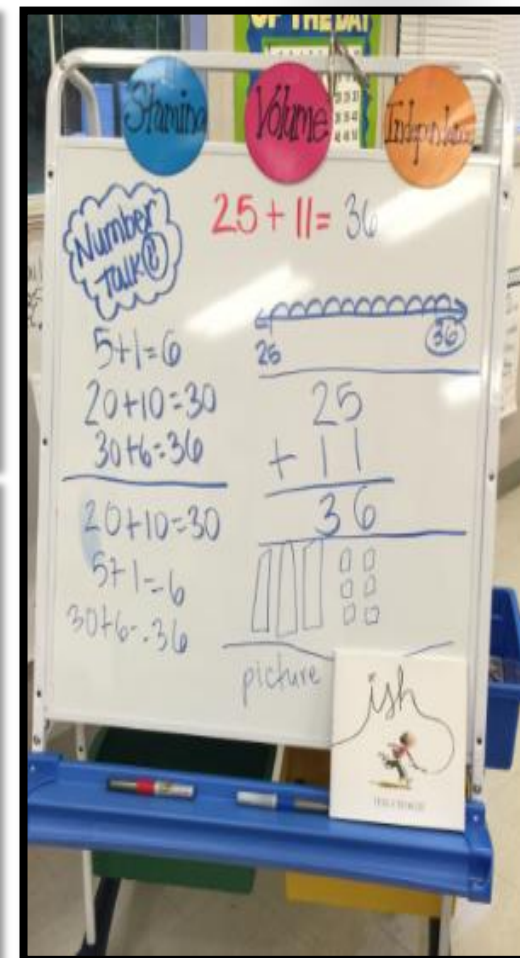 OF THE DAY
Stamina
Volume
Independence
Number
Talk
25 + 11 = 36
5+1=6
20+10=30
30+6=36
20+10=30
5+1=6
30+6=36
25
36
25
+ 11
36
picture
ish